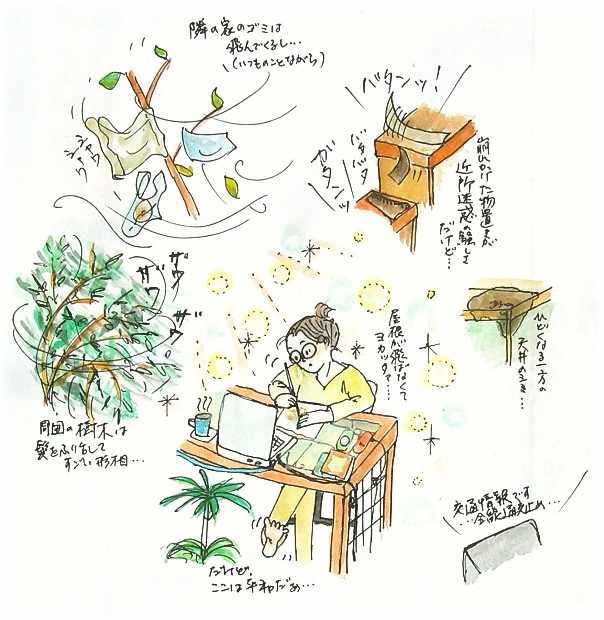 隣の家のゴミは
飛んでくるし…
(いつものことながら)
シャワ
シャワ
バタンッ!
バタバタ
ガタンッ
崩れかけた物置きが
近所迷惑の騒しさ
だけど…
ザワ
ザワ
ザワ
周囲の樹木は
髪をふり乱して
すごい形相…
屋根が飛ばなくて
ヨカッタァ…
ひどくなる一方の
天井のシミ…
交通情報です
…全線通行止め…
だけど、
ここは平和だぁ…